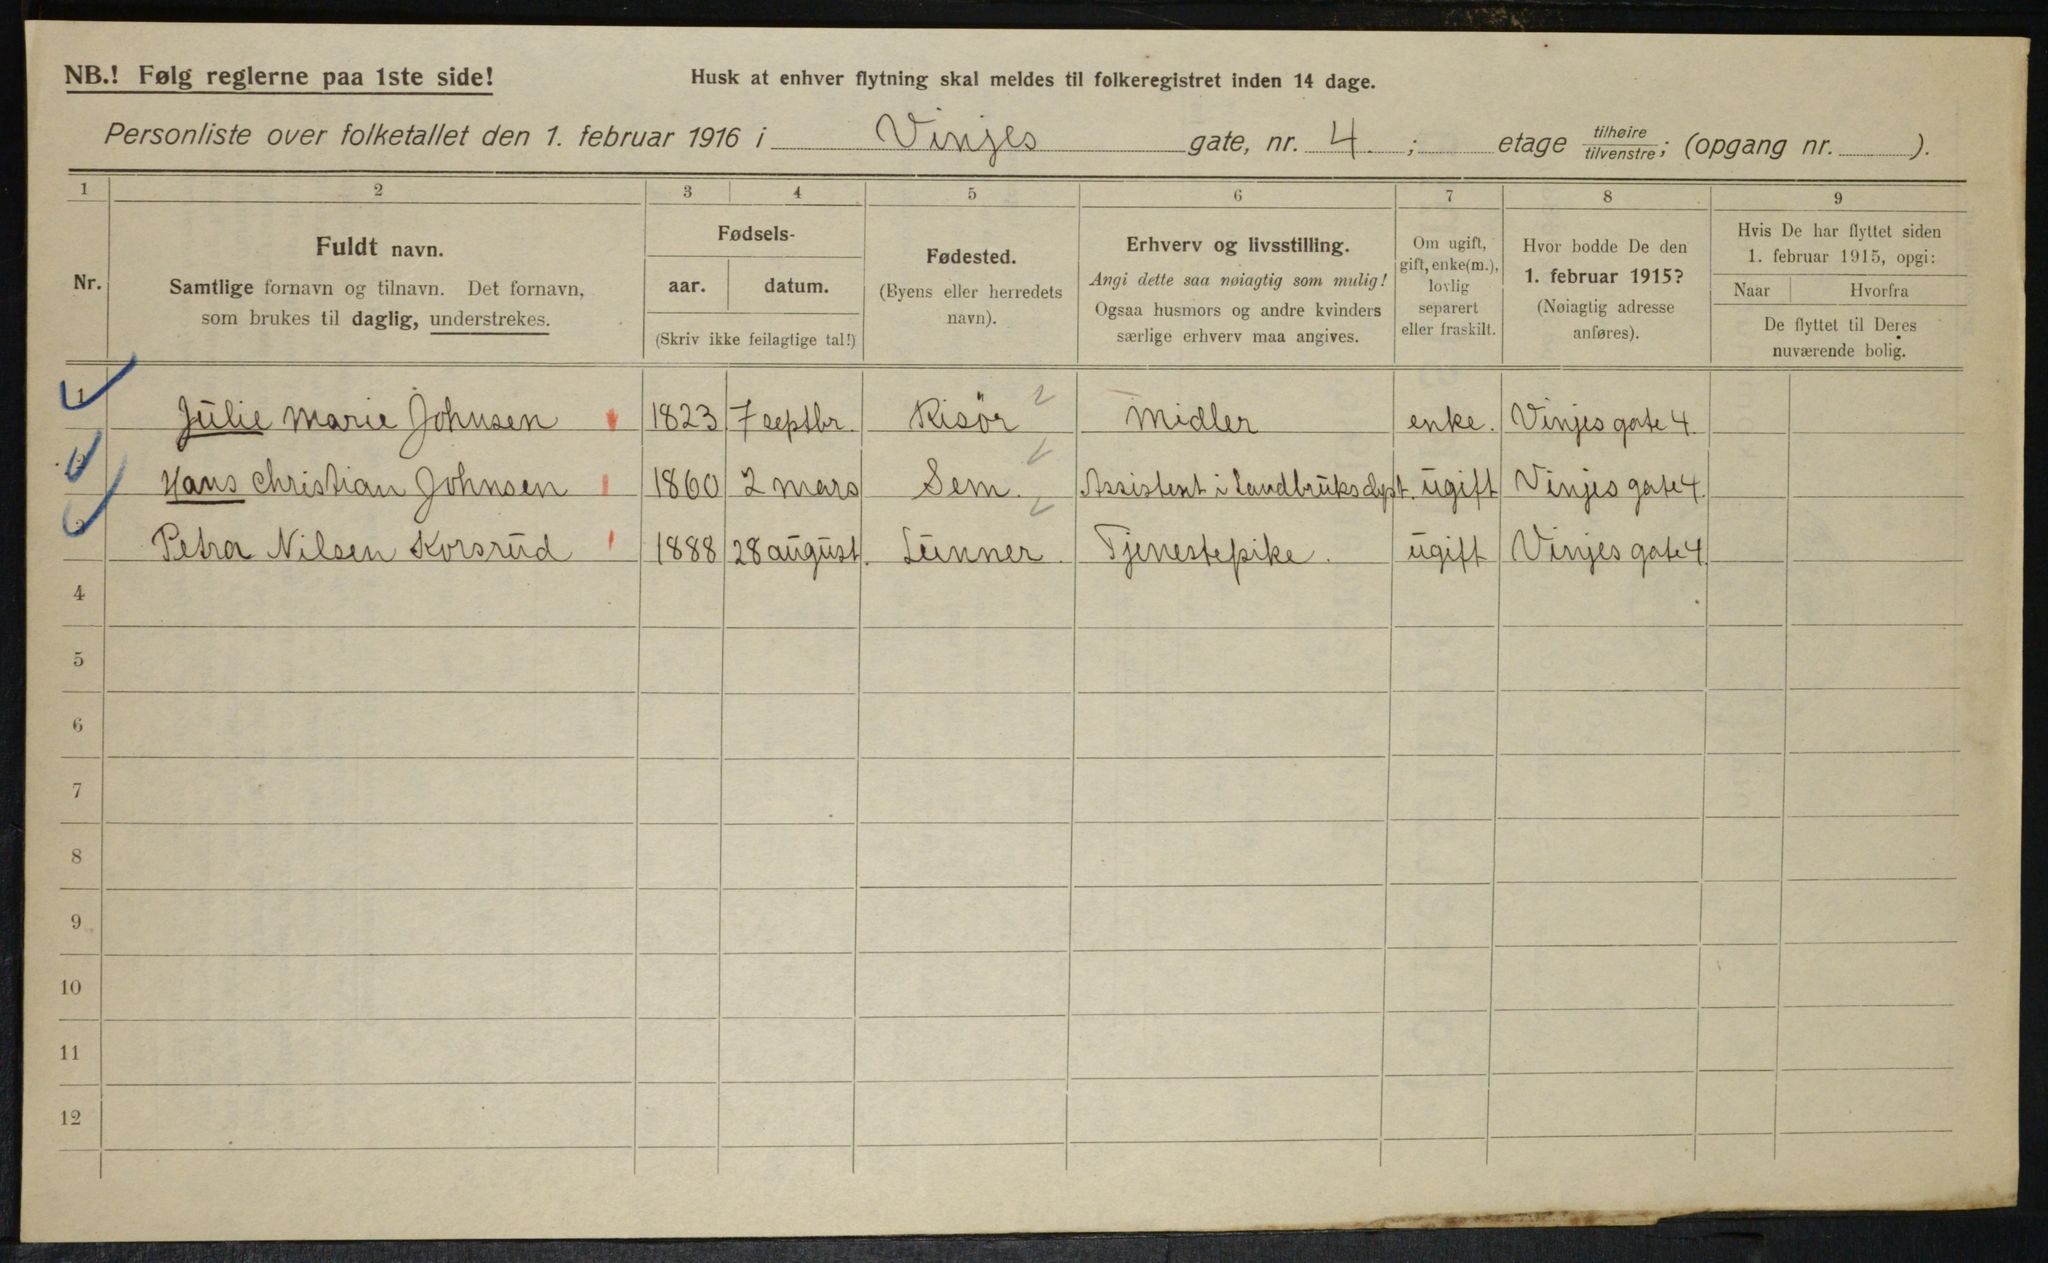 NB.! Følg reglerne paa 1ste side! Husk at enhver flytning skal meldes til folkeregistret inden 14 dage.
Personliste over folketallet den 1. februar 1916 i Vinjes gate, nr. 4. ; etage tilhøire/tilvenstre; (opgang nr. ).
1 2 3 4 5 6 7 8 9
Nr.
Fuldt navn.
Samtlige fornavn og tilnavn. Det fornavn,
som brukes til daglig, understrekes.
Fødsels-
aar. datum.
(Skriv ikke feilagtige tal!)
Fødested.
(Byens eller herredets
navn).
Erhverv og livsstilling.
Angi dette saa nøiagtig som mulig!
Ogsaa husmors og andre kvinders
særlige erhverv maa angives.
Om ugift,
gift, enke(m.),
lovlig
separert
eller fraskilt.
Hvor bodde De den
1. februar 1915?
(Nøiagtig adresse
anføres).
Hvis De har flyttet siden
1. februar 1915, opgi:
Naar Hvorfra
De flyttet til Deres
nuværende bolig.
1 Julie Marie Johnsen 1823 7 septbr. Risør Midler enke. Vinjes gate 4.
2 Hans Christian Johnsen 1860 2 mars Sem. Assistent i Landbruksdpt. ugift Vinjes gate 4.
3 Petra Nilsen Korsrud 1888 28 august. Lunner. Tjenestepike. ugift Vinjes gate 4.
4
5
6
7
8
9
10
11
12